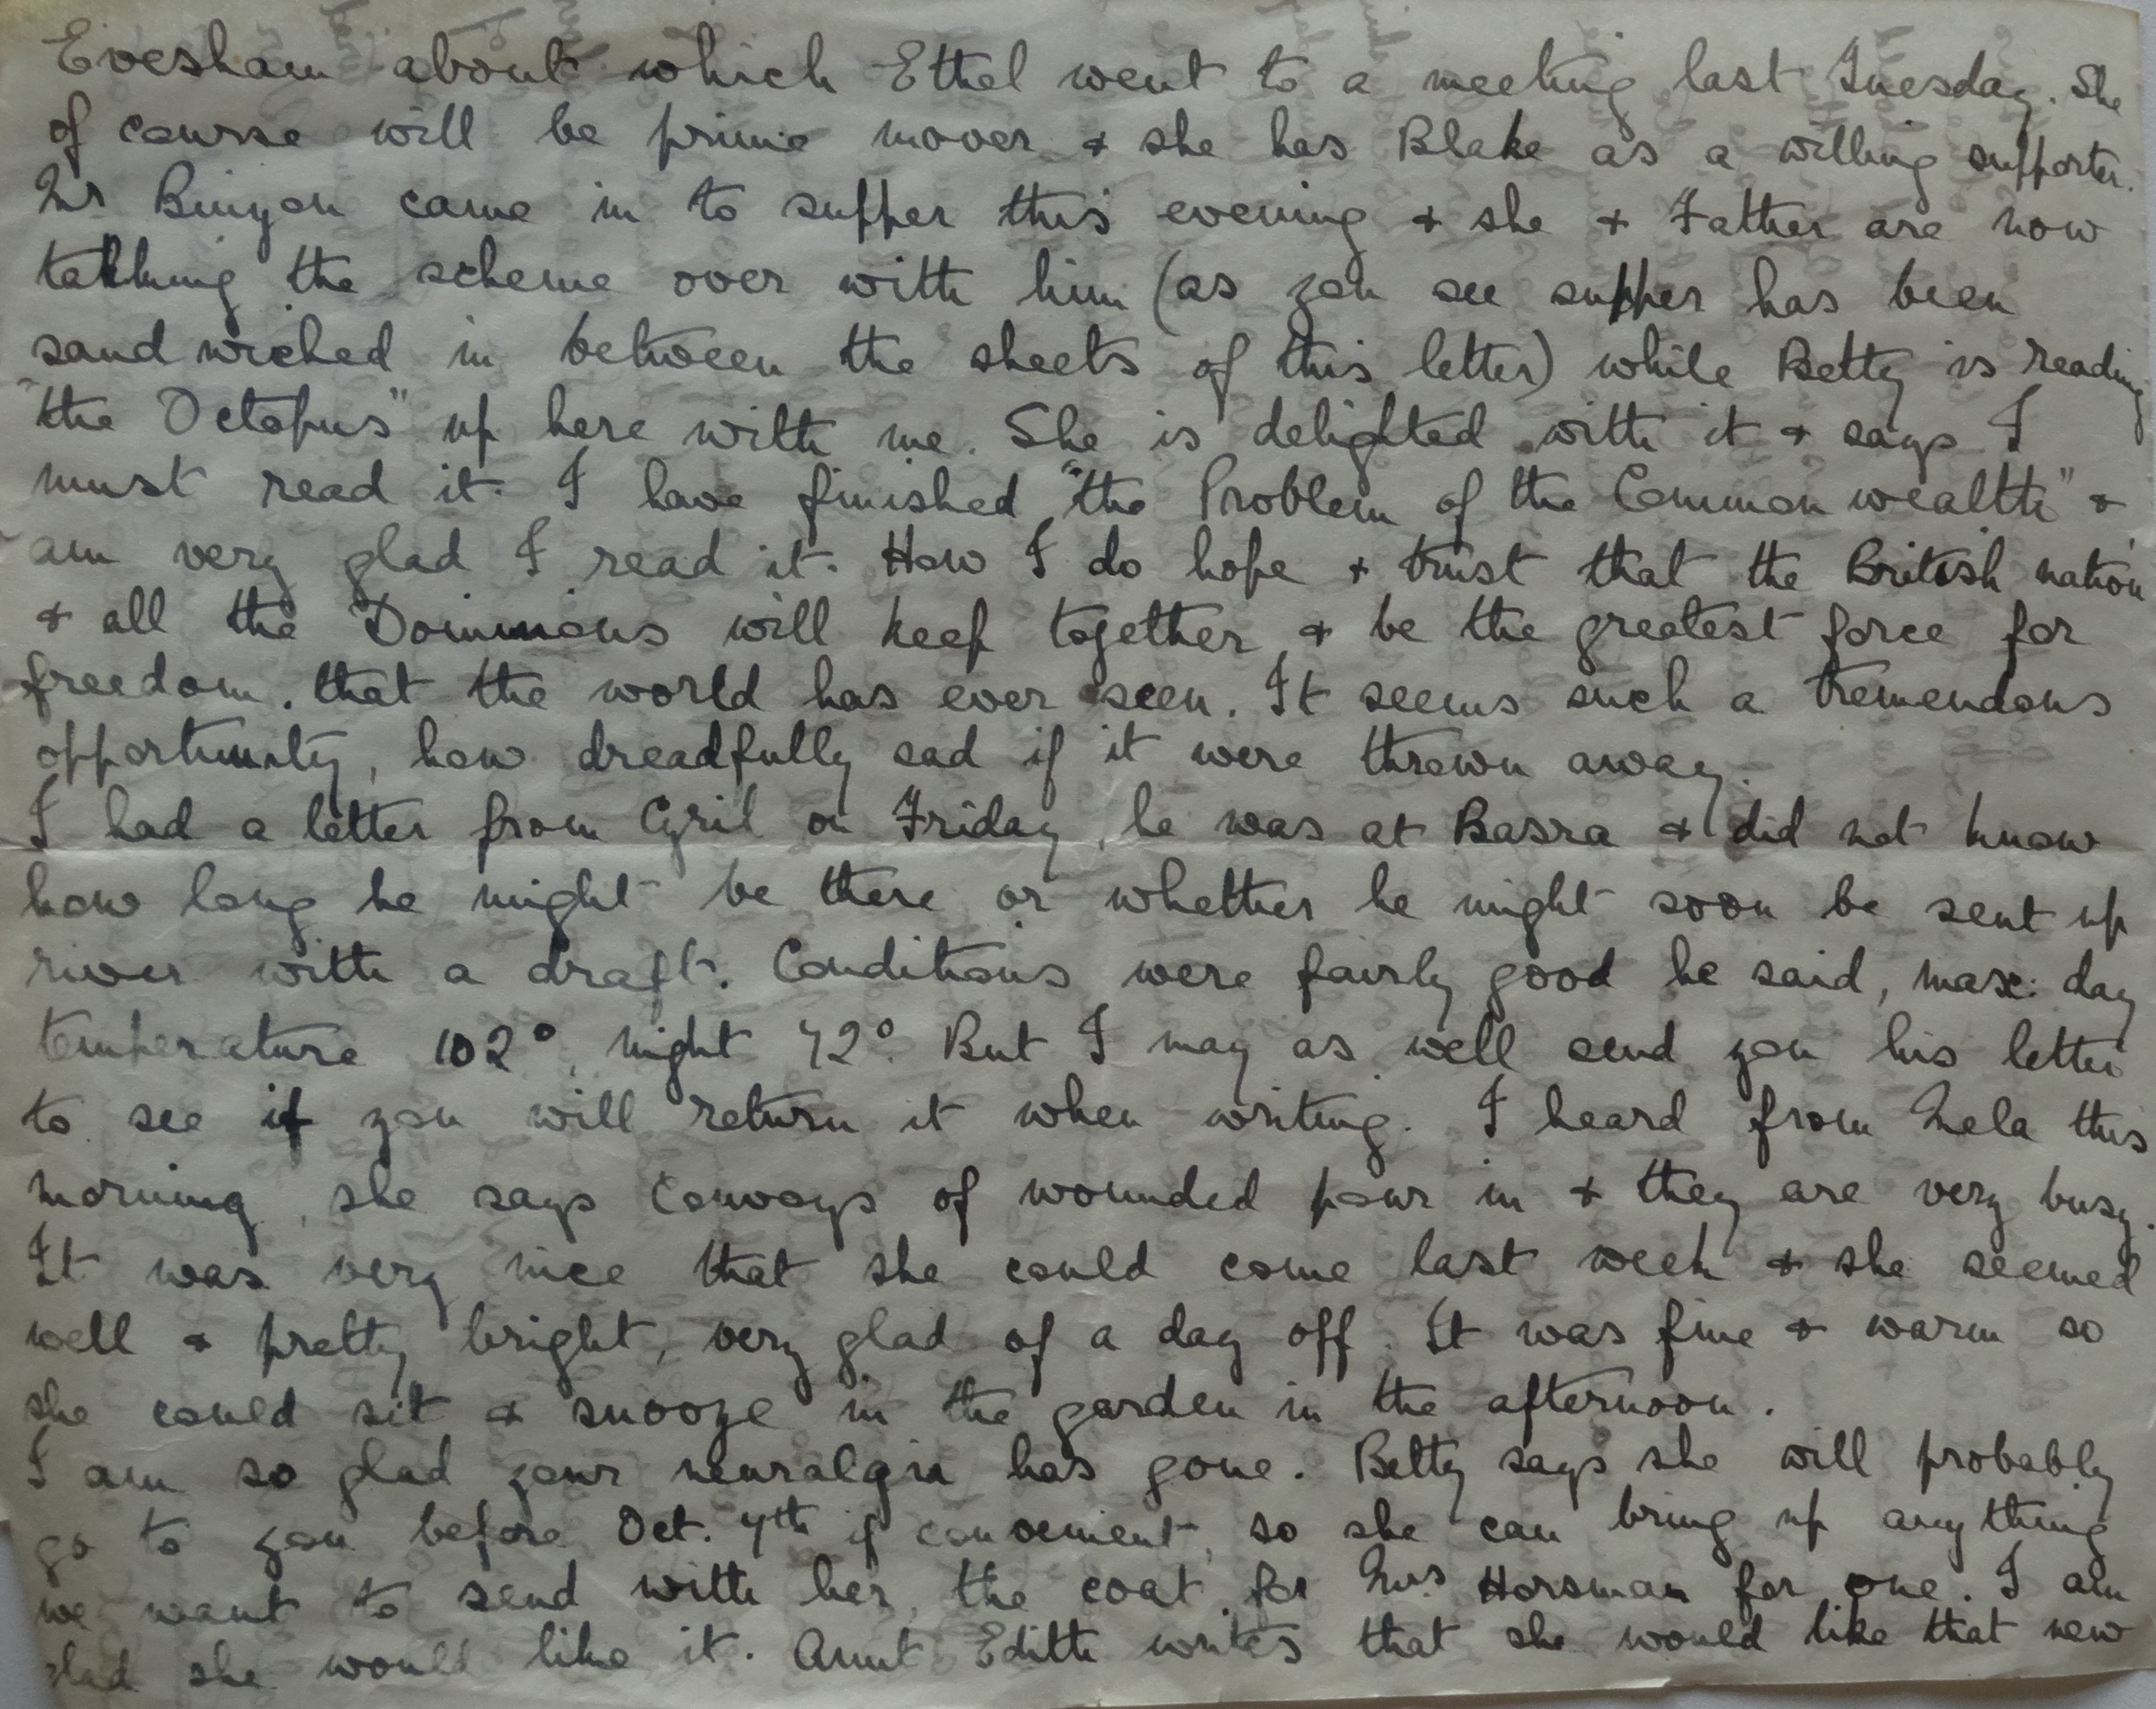 Evesham about which Ethel went to a meeting last Tuesday. She
of course will be prime mover & she has Blake as a willing supporter.
Mr Binyon came in to supper this evening & she & Father are now
talking the scheme over with him (as you see supper has been
sandwiched in between the sheets of this letter) while Betty is reading
"the Octopus" up here with me. She is delighted with it & says I
must read it. I have finished "the Problem of the Commonwealth" &
am very glad I read it. How I do hope & trust that the British nation
& all the Dominions will keep together & be the greatest force for
freedom. that the world has ever seen. It seems such a tremendous
opportunity, how dreadfully sad if it were thrown away.
I had a letter from Cyril on Friday, he was at Basra & did not know
how long he might be there or whether he might soon be sent up
river with a draft. Conditions were fairly good he said, max: day
temperature 102°, night 72°. But I may as well send you his letter
to see if you will return it when writing. I heard from Mela this
morning, she says convoys of wounded pour in & they are very busy.
It was very nice that she could come last week & she seemed
well & pretty bright, very glad of a day off. It was fine & warm so
she could sit & snooze in the garden in the afternoon.
I am so glad your neuralgia has gone. Betty says she will probably
go to you before Oct. 7th if convenient, so she can bring up anything
we want to send with her, the coat for Mrs Horsman for one. I am
glad she would like it. Aunt Edith writes that she would like that new